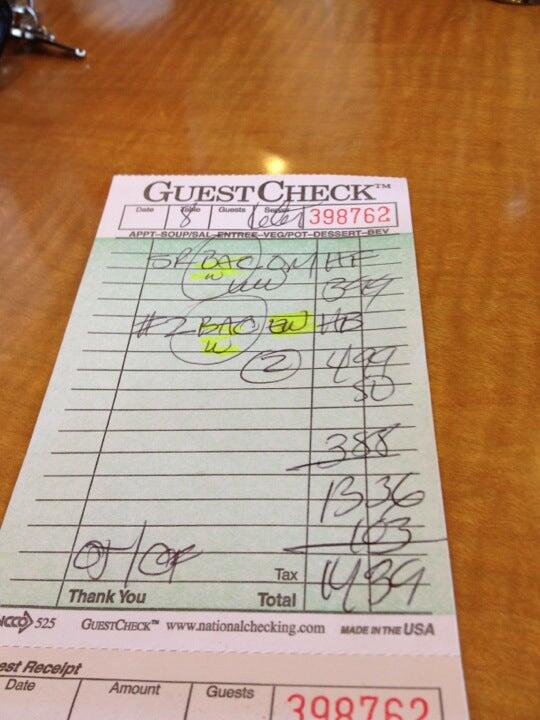 GUESTCHECK™
Date Table Guests Server
8 398762
APPT-SOUP/SAL-ENTREE-VEG/POT-DESSERT-BEV
SR BAC OM HF
W WW 399
#2 BAC EW HB
W
2 499
50
388
1336
103
OJ/CF
Tax
Thank You Total 1439
NCCO 525 GUESTCHECK™ www.nationalchecking.com MADE IN THE USA
est Receipt
Date Amount Guests 398762